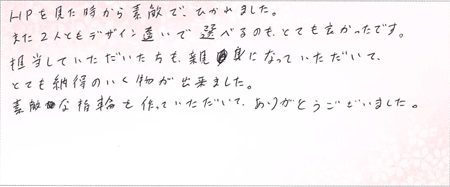 HPを見た時から素敵で、ひかれました。
また2人ともデザイン違いで選べるのも、とても良かったです。
担当していただいたちも、親身になっていただいて、
とても納得のいく物が出来ました。
素敵な指輪を作っていただいて、ありがとうございました。